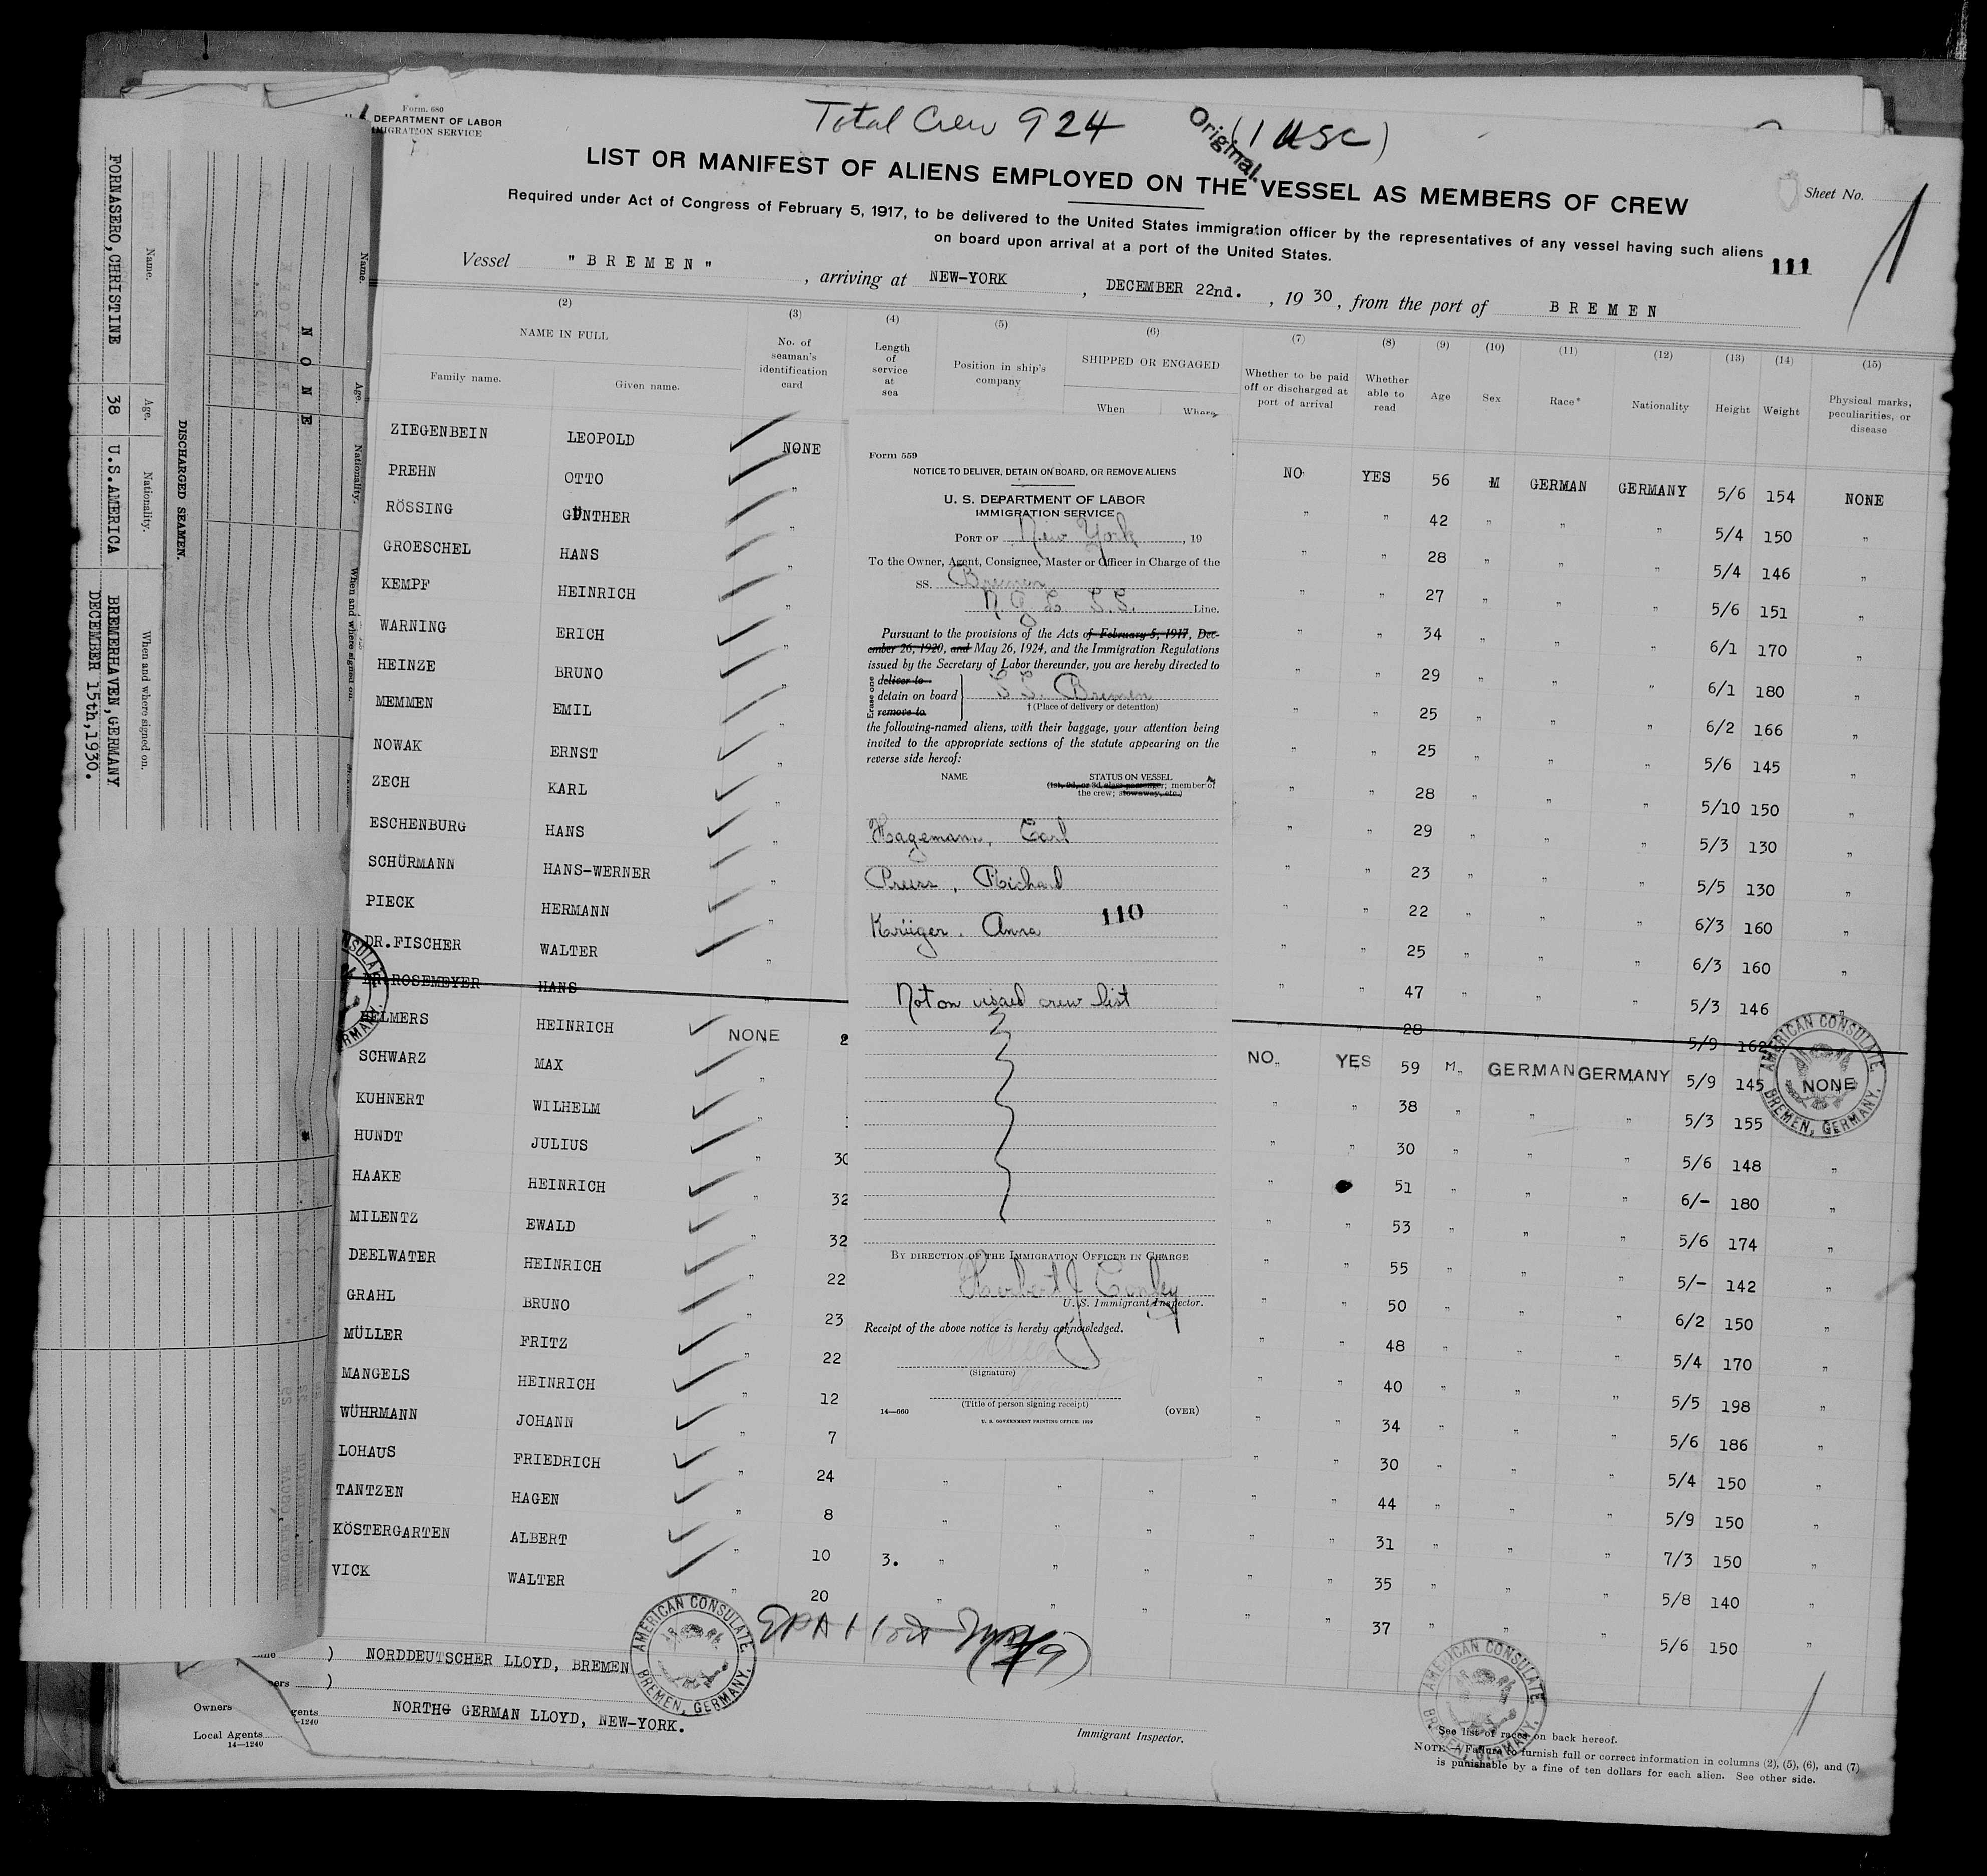 Form. 680
DEPARTMENT OF LABOR
IMMIGRATION SERVICE
Total Crew 924 (1 USC)
Original.
LIST OR MANIFEST OF ALIENS EMPLOYED ON THE VESSEL AS MEMBERS OF CREW
Sheet No. 1
Required under Act of Congress of February 5, 1917, to be delivered to the United States immigration officer by the representatives of any vessel having such aliens
on board upon arrival at a port of the United States.
111
Vessel "BREMEN", arriving at NEW-YORK, DECEMBER 22nd., 1930, from the port of BREMEN
(2) (3) (4) (5) (6) (7) (8) (9) (10) (11) (12) (13) (14) (15)
NAME IN FULL
Family name. Given name.
No. of seaman's identification card
Length of service at sea
Position in ship's company
SHIPPED OR ENGAGED
When Where
Whether to be paid off or discharged at port of arrival
Whether able to read
Age
Sex
Race*
Nationality
Height
Weight
Physical marks, peculiarities, or disease
ZIEGENBEIN LEOPOLD NONE NO YES 56 M GERMAN GERMANY 5/6 154 NONE
PREHN OTTO " " " 42 " " " 5/4 150 "
RÖSSING GÜNTHER " " " 28 " " " 5/4 146 "
GROESCHEL HANS " " " 27 " " " 5/6 151 "
KEMPF HEINRICH " " " 34 " " " 6/1 170 "
WARNING ERICH " " " 29 " " " 6/1 180 "
HEINZE BRUNO " " " 25 " " " 6/2 166 "
MEMMEN EMIL " " " 25 " " " 5/6 145 "
NOWAK ERNST " " " 28 " " " 5/10 150 "
ZECH KARL " " " 29 " " " 5/3 130 "
ESCHENBURG HANS " " " 23 " " " 5/5 130 "
SCHÜRMANN HANS-WERNER " " " 22 " " " 6/3 160 "
PIECK HERMANN " " " 25 " " " 6/3 160 "
DR.FISCHER WALTER " " " 47 " " " 5/3 146 "
DR.ROSEMEYER HANS " " 28 5/9 162
HELMERS HEINRICH NONE 2 NO YES 59 M GERMAN GERMANY 5/9 145 NONE
SCHWARZ MAX " " " 38 " " " 5/3 155
KUHNERT WILHELM " " " 30 " " " 5/6 148 "
HUNDT JULIUS " 30 " 51 " " " 6/- 180 "
HAAKE HEINRICH " 32 " " 53 " " " 5/6 174 "
MILENTZ EWALD " 32 " " 55 " " " 5/- 142 "
DEELWATER HEINRICH " 22 " " 50 " " " 6/2 150 "
GRAHL BRUNO " 23 " " 48 " " " 5/4 170 "
MÜLLER FRITZ " 22 " " 40 " " " 5/5 198 "
MANGELS HEINRICH " 12 " " 34 " " " 5/6 186 "
WÜHRMANN JOHANN " 7 " " 30 " " " 5/4 150 "
LOHAUS FRIEDRICH " 24 " " " " " 44 " " " 5/9 150 "
TANTZEN HAGEN " 8 " " " " " 31 " " " 7/3 150 "
KÖSTERGARTEN ALBERT " 10 3. " " " " " 35 " " " 5/8 140 "
VICK WALTER " 20 " " " " " 37 " " " 5/6 150 "
Form 559
NOTICE TO DELIVER, DETAIN ON BOARD, OR REMOVE ALIENS
U. S. DEPARTMENT OF LABOR
IMMIGRATION SERVICE
PORT OF New York, 19
To the Owner, Agent, Consignee, Master or Officer in Charge of the
SS. Bremen
N.G.L. S.S. Line.
Pursuant to the provisions of the Acts of February 5, 1917, Dec-
ember 26, 1920, and May 26, 1924, and the Immigration Regulations
issued by the Secretary of Labor thereunder, you are hereby directed to
Erase one
deliver to
detain on board S.S. Bremen
remove to
†(Place of delivery or detention)
the following-named aliens, with their baggage, your attention being
invited to the appropriate sections of the statute appearing on the
reverse side hereof:
NAME STATUS ON VESSEL
(1st, 2d, or 3d class passenger; member of
the crew; stowaway, etc.)
Hagemann, Carl
Preuss, Richard
Krüger, Anna
110
Not on visaed crew list
BY DIRECTION OF THE IMMIGRATION OFFICER IN CHARGE
Herbert J Conley
U. S. Immigrant Inspector.
Receipt of the above notice is hereby acknowledged.
(Signature)
(Title of person signing receipt)
14—660 (OVER)
U. S. GOVERNMENT PRINTING OFFICE: 1929
AMERICAN CONSULATE, BREMEN, GERMANY.
AMERICAN CONSULATE, BREMEN, GERMANY.
AMERICAN CONSULATE, BREMEN, GERMANY.
) NORDDEUTSCHER LLOYD, BREMEN
)
NORTHG GERMAN LLOYD, NEW-YORK.
Owners
Local Agents
14—1240
Immigrant Inspector.
See list of races on back hereof.
NOTE.—Failure to furnish full or correct information in columns (2), (5), (6), and (7)
is punishable by a fine of ten dollars for each alien. See other side.
Name. Age. Nationality. When and where signed on.
NONE
DISCHARGED SEAMEN.
Name. Age. Nationality. When and where signed on.
FORNASERO,CHRISTINE 38 U.S.AMERICA BREMERHAVEN,GERMANY
DECEMBER 15th,1930.